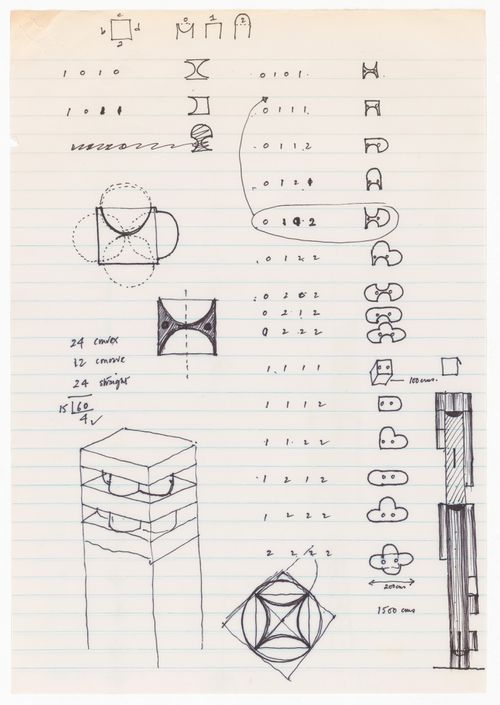 c
b d
2
0 1 2
1 0 1 0
0 1 0 1
0 1 1 1
0 1 1 2
0 1 2 1
0 2
0 1 2 2
0 2 0 2
0 2 1 2
0 2 2 2
24 convex
12 concave
24 straight
15 60
4
1 1 1 1
100 cms.
1 1 1 2
1 1 2 2
1 2 1 2
1 2 2 2
2 2 2 2
200 cms
1500 cms